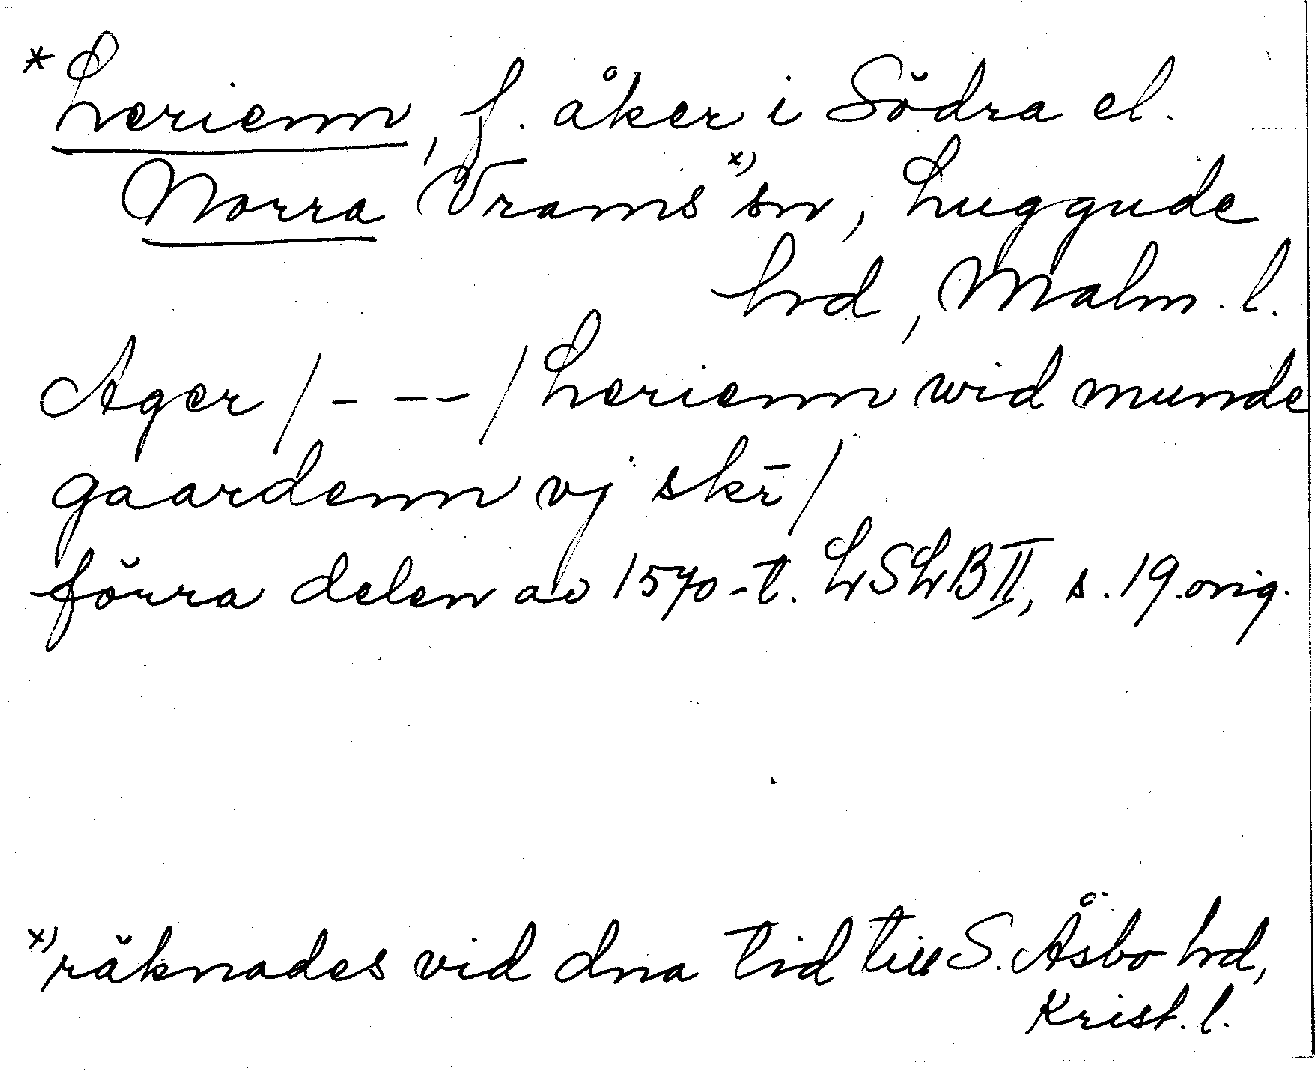 *Lerienn, f. åker i Södra el.
Norra Vrams x) sn, Luggude
hrd, Malm. l.
Ager /- --/ Lerienn wid munde
gaardenn vj skr̄/
förra delen av 1570-t. LSLB II, s. 19. orig.
x) räknades vid dna tid till S. Åsbo hrd,
Krist. l.